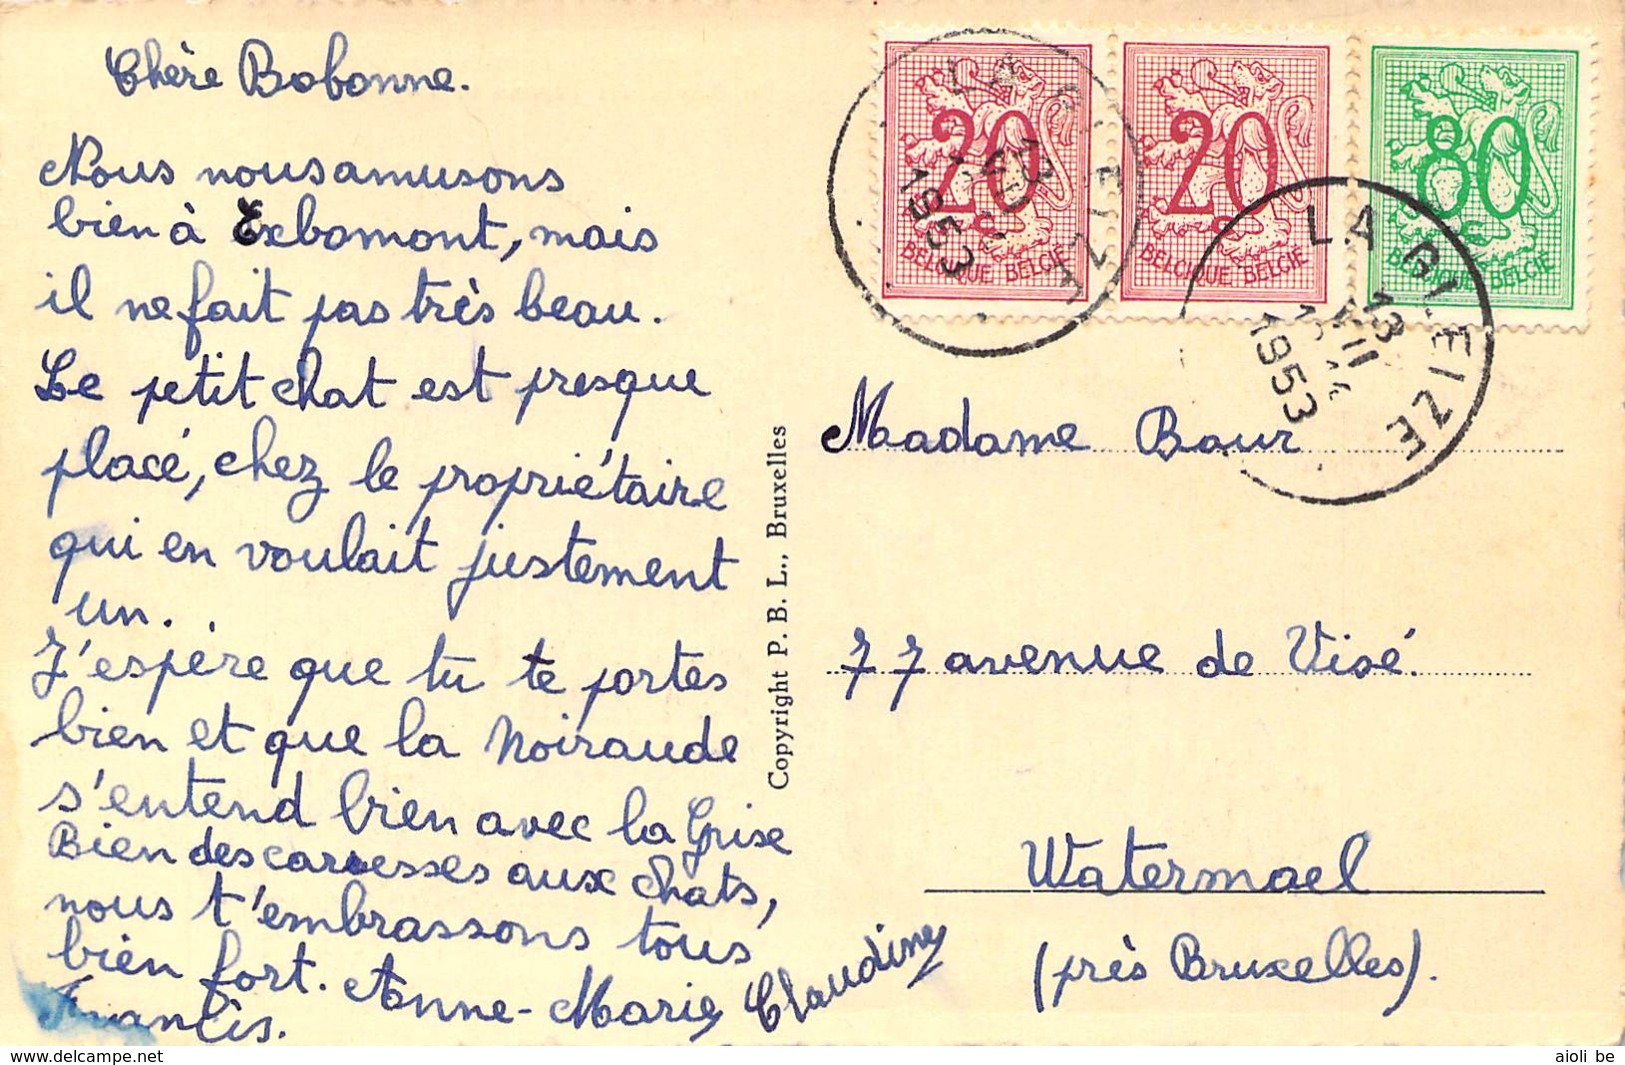 Chère Bobonne.
Nous nous amusons
bien à Exbomont, mais
il ne fait pas très beau.
Le petit chat est presque
placé, chez le propriétaire
qui en voulait justement
un.
J'espère que tu te portes
bien et que la Noiraude
s'entend bien avec la Grise
Bien des caresses aux chats,
nous t'embrassons tous
bien fort. Anne-Marie, Claudine,
Francis.
Copyright P. B. L., Bruxelles
20
BELGIQUE BELGIE
20
BELGIQUE BELGIE
80
BELGIQUE BELGIE
LA GLEIZE
13
VII
1953
LA GLEIZE
13
VII
1953
Madame Baur
77 avenue de Visé.
Watermael
(près Bruxelles).
aioli be